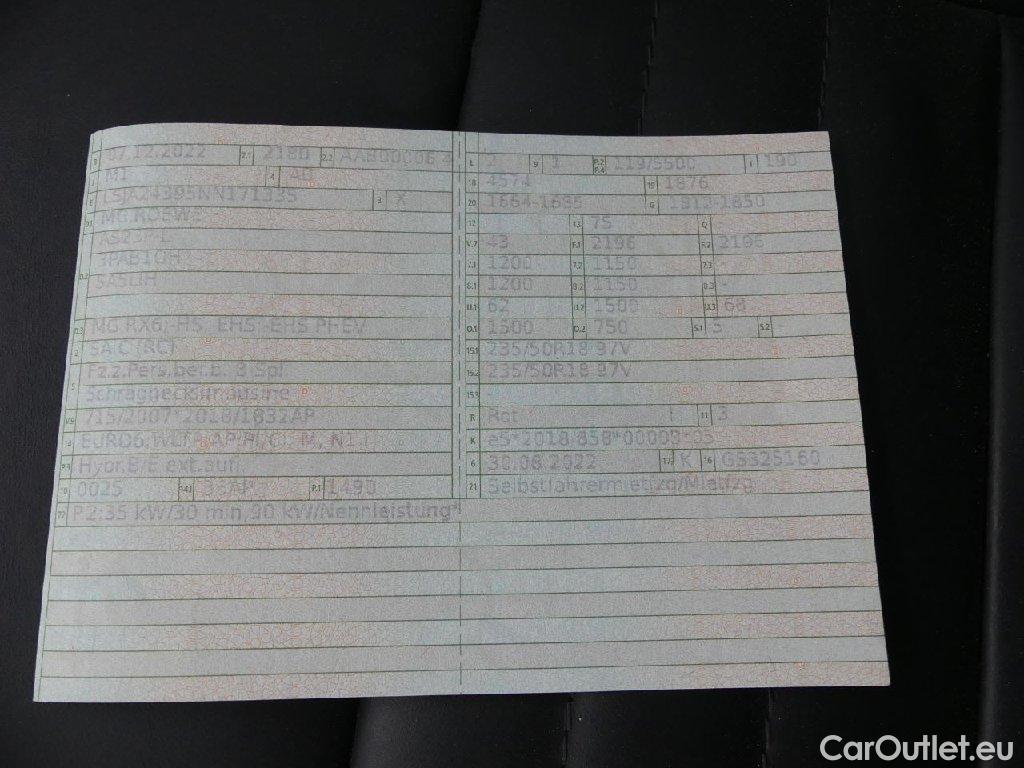 B 07.12.2022 2.1 2180 2.2
J M1 4 AD
E 3 X
D.1 MG ROEWE
D.2
SASLIH
D.3 MG RX6,-HS, EHS,-EHS PHEV
2 SAIC (RC)
5 Fz.z.Pers.bef.b. 8 Spl.
Schräghecklimousine
V.9 715/2007*2018/1832AP
14
P.3 Hybr.B/E ext.aufl.
10 0025 14.1 36AP P.1 1490
22 P2:35 kW/30 min,90 kW/Nennleistung*
L 2 9 1 P.2 P.4 119/5500 T 190
18 4574 19 1876
20 1664-1685 G 1812-1850
12 - 13 75 Q -
V.7 43 F.1 2196 F.2 2196
7.1 1200 7.2 1150 7.3 -
8.1 1200 8.2 1150 8.3 -
U.1 62 U.2 1500 U.3 68
O.1 1500 O.2 750 S.1 5 S.2 -
15.1 235/50R18 97V
15.2 235/50R18 97V
15.3 -
R Rot 11 3
K e5*2018/858*00009*03
6 30.08.2022 17 K 16 GS325160
21 Selbstfahrermietfzg/Mietfzg
CarOutlet.eu